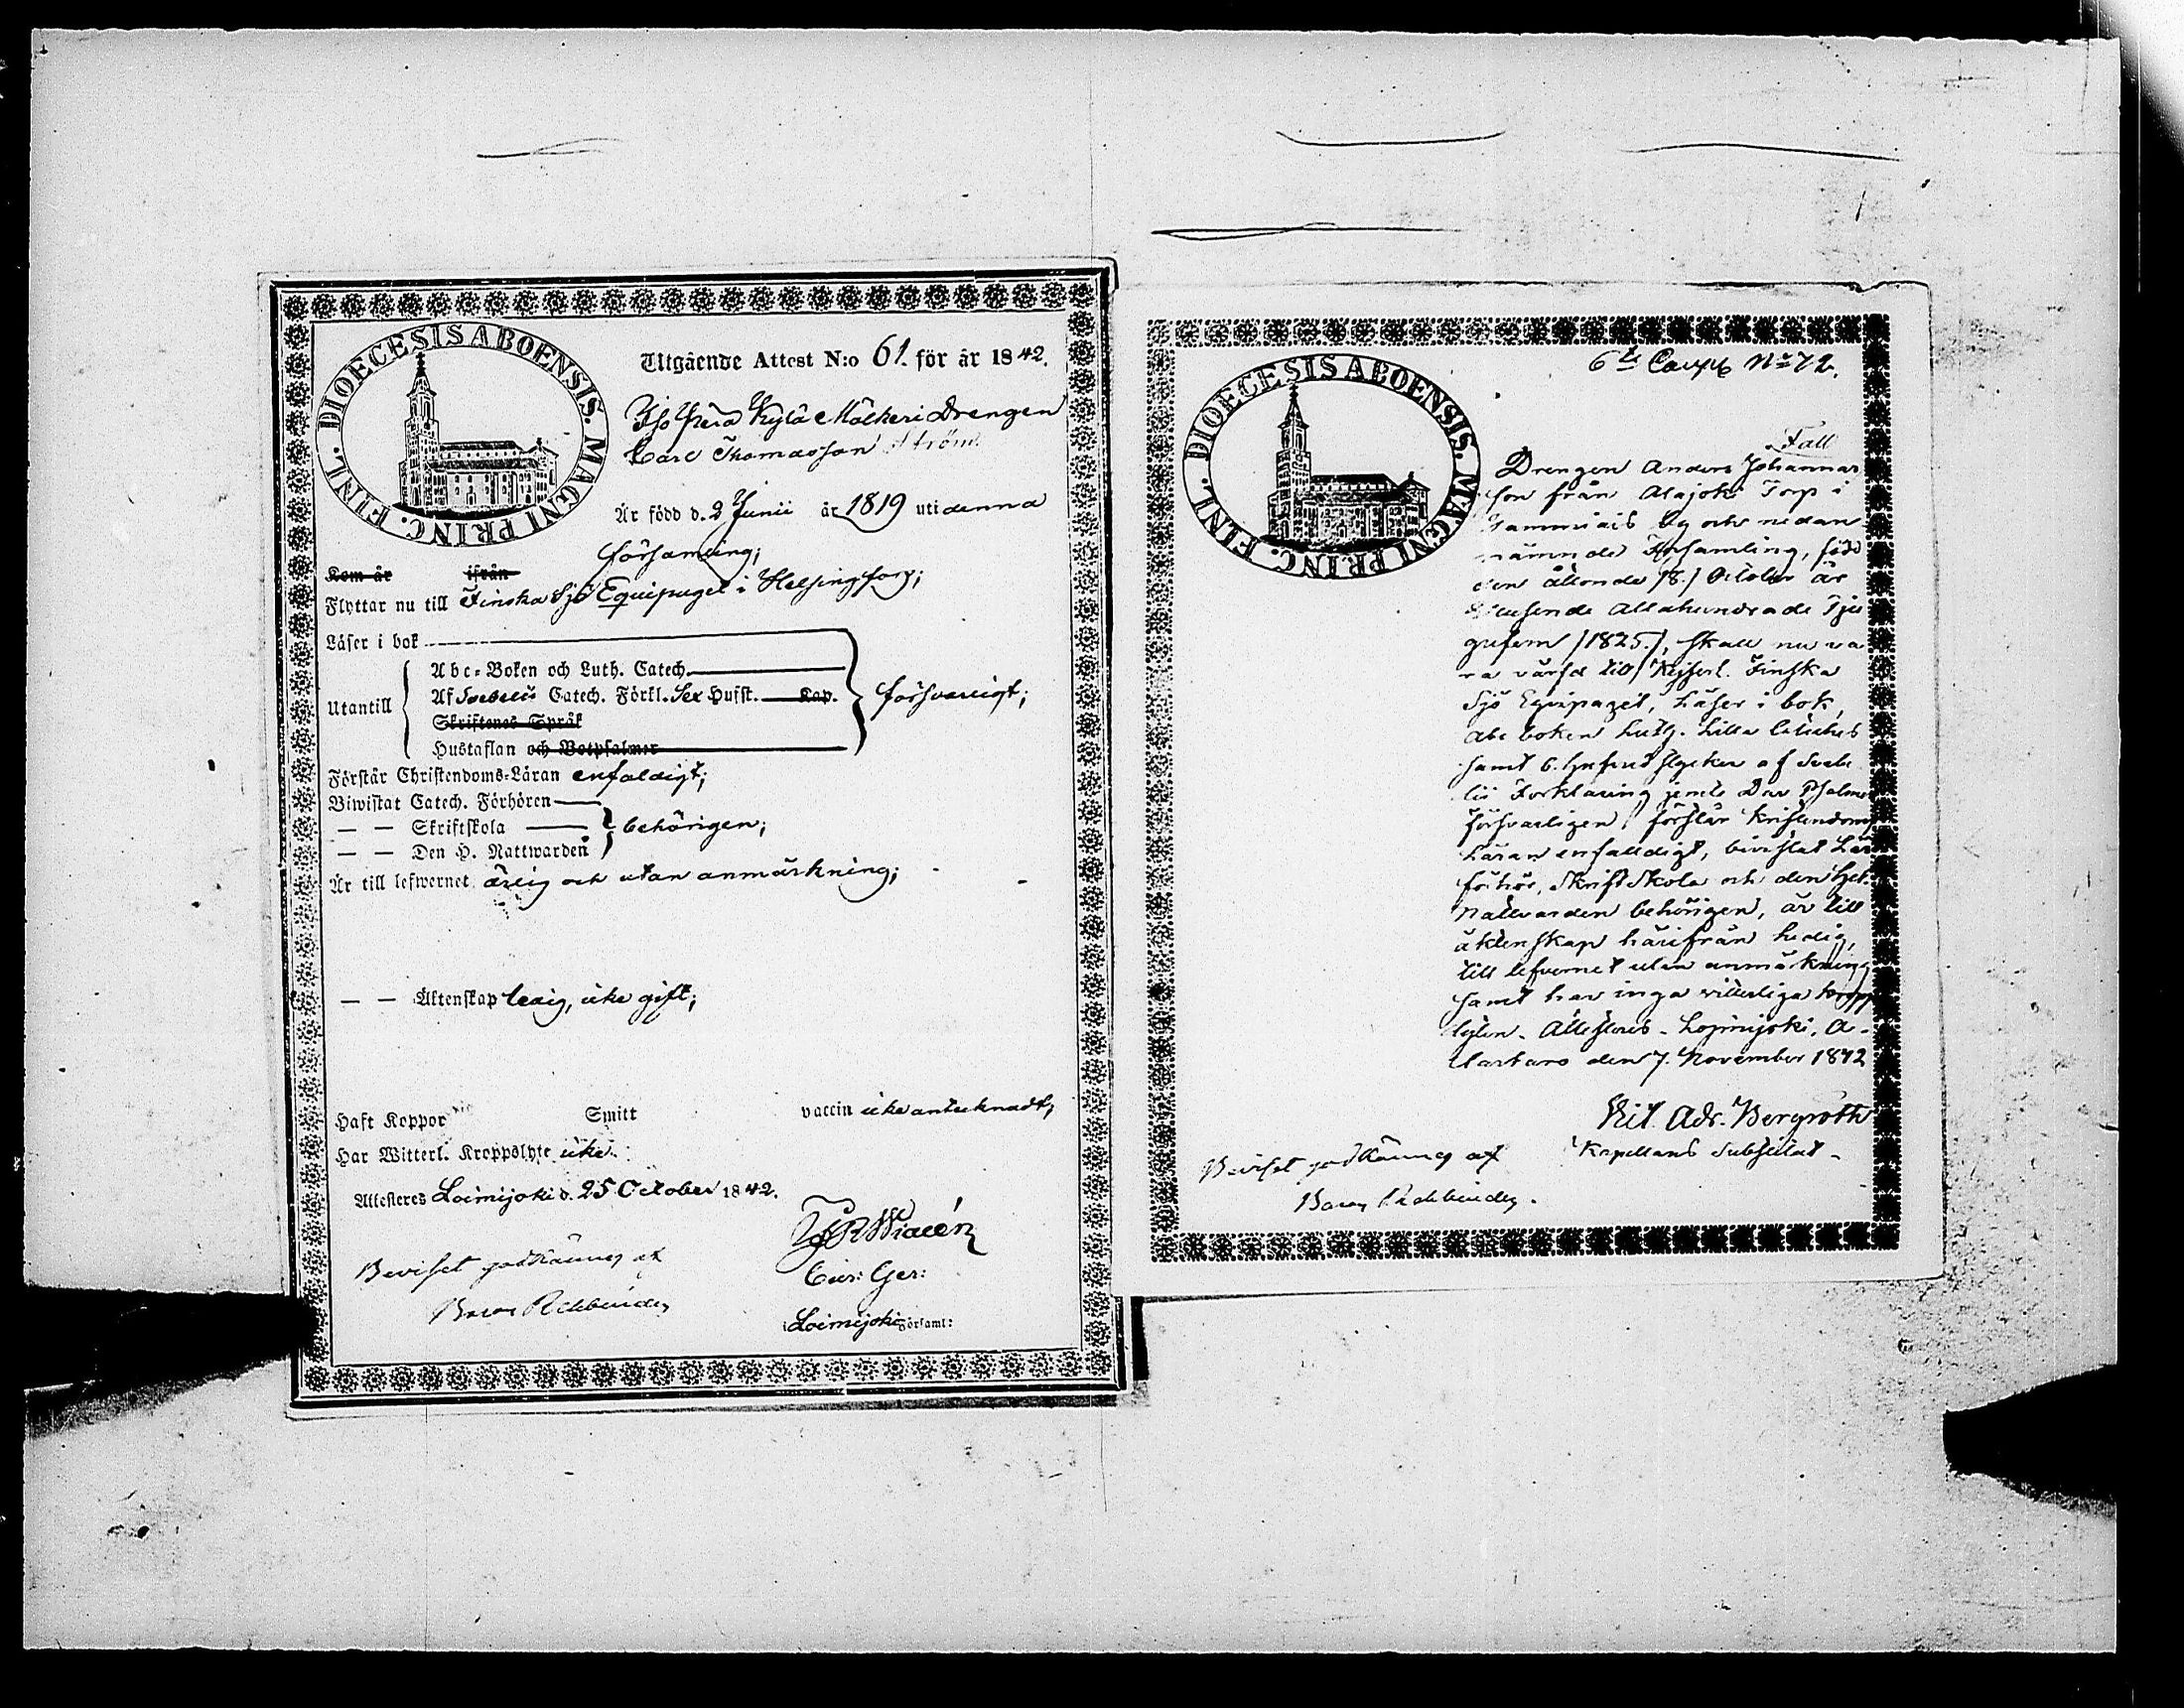 DIOECESIS ABOENSIS. MAGNI PRINC. FINL.
Utgående Attest N:o 61. för år 1842.
Kylä Mälkeri Drengen
Carl Thomasson Ström
Är född d. 2 Junii år 1819 uti denna
församling;
Kom år ifrån
Flyttar nu till Finska Sjö Equipaget i Helsingfors;
Läser i bok
Utantill
Abc-Boken och Luth. Catech.
Af Svebelii Catech. Förkl. Sex Hufst. Kap.
Skriftenes Språk
Hustaflan och Botpsalmer
försvarligt;
Förstår Christendoms-Läran enfaldigt;
Biwistat Catech. Förhören
— — Skriftskola
— — Den H. Nattwarden
behörigen;
Är till lefwernet ärlig och utan anmärkning;
— — Äktenskap ledig, icke gift;
Haft Koppor Smitt vaccin icke antecknadt;
Har Witterl. Kroppslyte icke.
Attesteres Loimijoki d. 25 October 1842.
Cur: Ger:
i Loimijoki Församl:
Beviset godkännes af
Baron Rehbinder
DIOECESIS ABOENSIS. MAGNI PRINC. FINL.
6te Comp N:o 72.
Fall
Drengen Anders Johannas
son från Alajoki Torp i
by och nedan
nämnde Församling, född
den åttonde /8./ October år
Ettusende Åttahundrade Tju
gufem /1825./, skall nu va
ra värfd till Kejserl. Finska
Sjö Equipaget, Läser i bok,
abc boken Luth. Lilla Cateches
samt 6. hufvud stycken af Sveb
lii Förklaring jemte Dav Psalmer
försvarligen, förstår Kristendoms
Läran enfalldigt, bivistat Läs
förhör, Skrift Skola och den Hel.
Nattvarden behörigen, är till
äktenskap härifrån ledig,
till lefvernet utan anmärkning
samt har inga vitterliga kropps
lyten. Attesteres Loimijoki, A-
lastaro den 7. November 1842
Ad. Bergroth
Kapellans Substitut.
Beviset godkännes af
Baron Rehbinder.